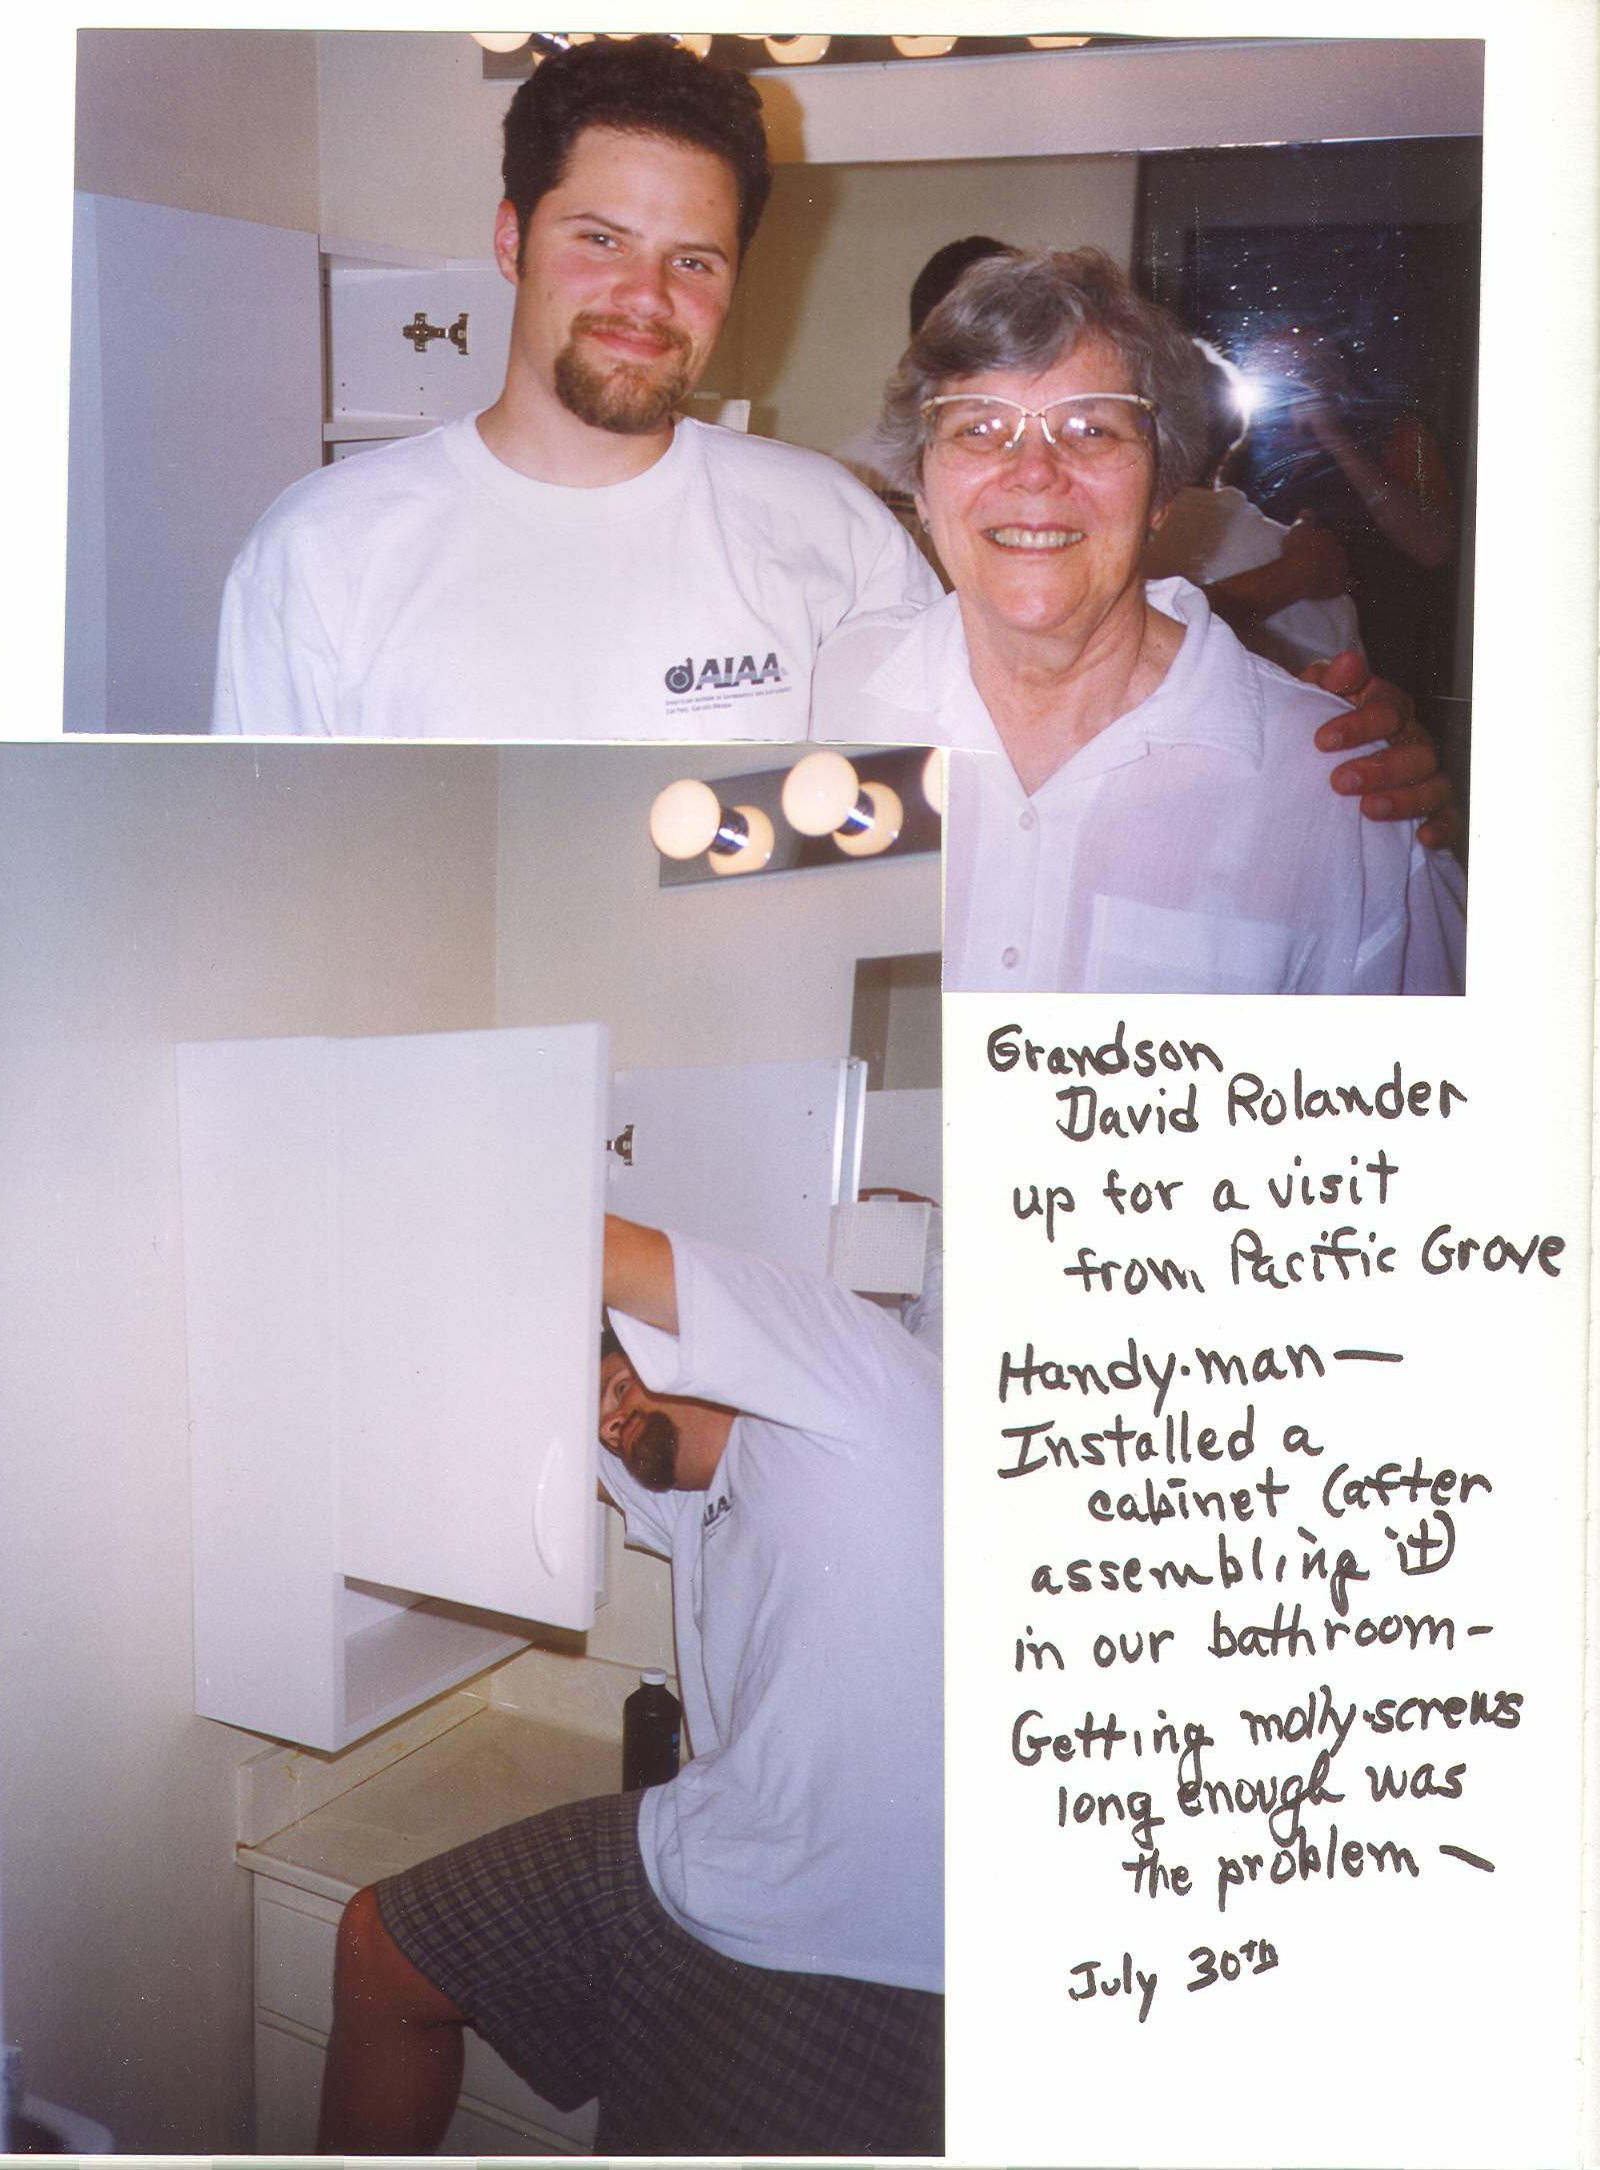 AIAA
Grandson
David Rolander
up for a visit
from Pacific Grove
Handy-man —
Installed a
cabinet (after
assembling it)
in our bathroom -
Getting molly-screws
long enough was
the problem -
July 30TH